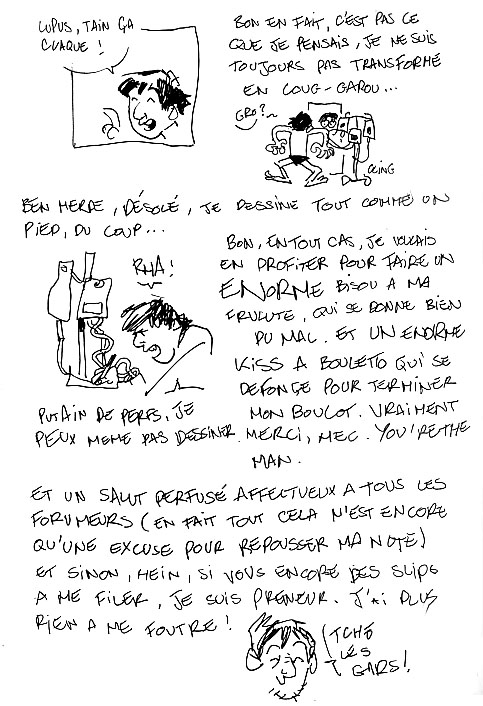 LUPUS, TAIN ÇA
CLAQUE !
BON EN FAIT, C'EST PAS CE
QUE JE PENSAIS, JE NE SUIS
TOUJOURS PAS TRANSFORMÉ
EN LOUG-GAROU...
GRO?~
CLING
BEN MERDE, DÉSOLÉ, JE DESSINE TOUT COMME UN
PIED, DU COUP...
RHA!
PUTAIN DE PERFS, JE
PEUX MEME PAS DESSINER.
BON, EN TOUT CAS, JE VOULAIS
EN PROFITER POUR FAIRE UN
ENORME BISOU A MA
FRULUTE, QUI SE DONNE BIEN
DU MAL. ET UN ENORME
KISS A BOULETO QUI SE
DEFONCE POUR TERMINER
MON BOULOT. VRAIMENT
MERCI, MEC. YOU'RE THE
MAN.
ET UN SALUT PERFUSÉ AFFECTUEUX A TOUS LES
FORUMEURS (EN FAIT TOUT CELA N'EST ENCORE
QU'UNE EXCUSE POUR REPOUSSER MA NOTE)
ET SINON, HEIN, SI VOUS ENCORE DES SLIPS
A ME FILER, JE SUIS PRENEUR. J'AI PLUS
RIEN A ME FOUTRE !
TCHÔ
LES
GARS!